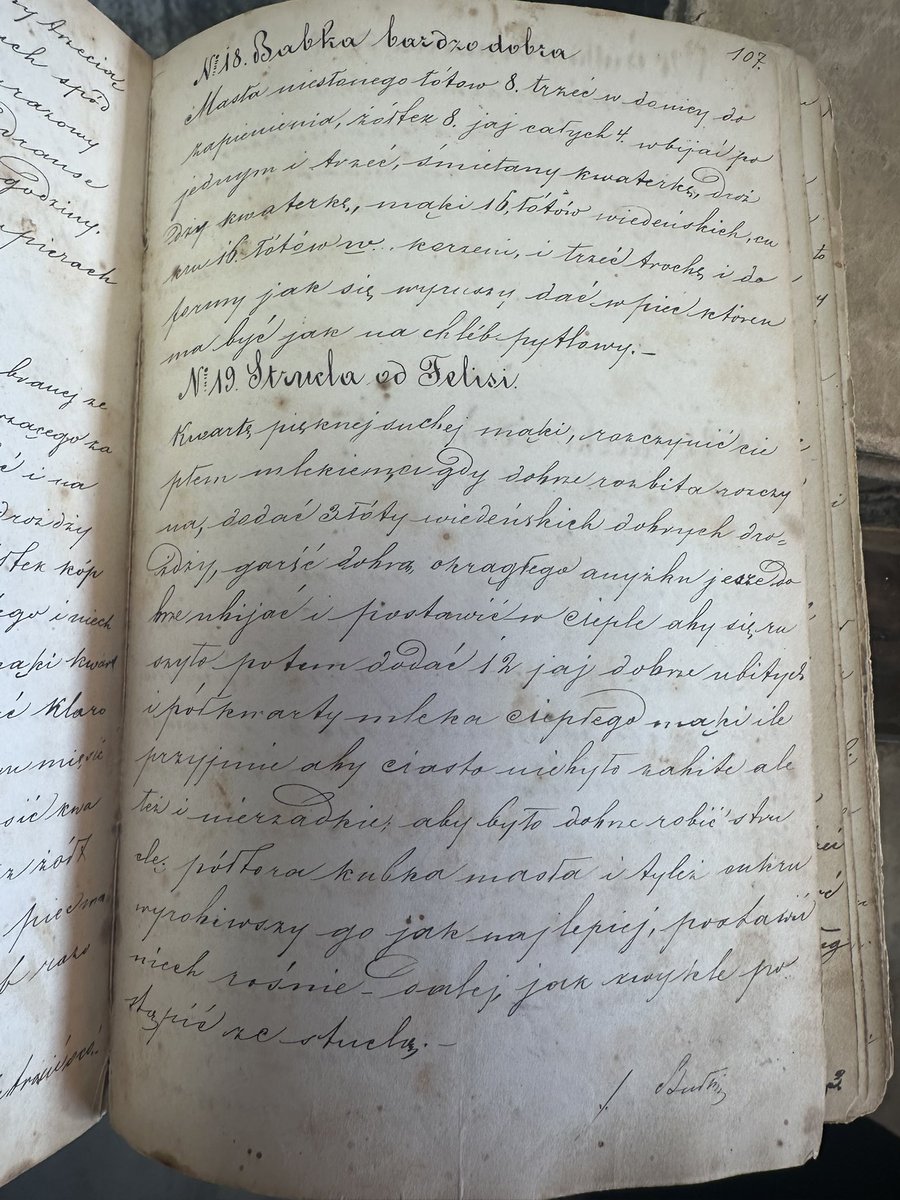 107.
N° 18. Babka bardzo dobra
Masła niesłonego łótow 8. trzeć w donicy do
zapienienia, żółtek 8. jaj całych 4. wbijać po
jednym i trzeć, śmietany kwaterkę, droż
dży kwaterkę, mąki 16. łótów wiedeńskich, cu
kru 16. łótów w. korzeni, i trzeć trochę i do
formy jak się wyruszy dać w piec któren
ma być jak na chléb pytlowy. –
N° 19. Strucla od Felisi.
Kwartę pięknej suchej mąki, rozczynić cie
płem mlekiem, a gdy dobrze rozbita rozczy
na, dodać 3 łóty wiedeńskich dobrych dro=
żdży, garść dobrą okrągłego anyżku jeszcze do
brze ubijać i postawić w cieple aby się ru
szyło potem dodać 12 jaj dobrze ubitych
i pół kwarty mleka ciepłego mąki ile
przyjmie aby ciasto niebyło zabite ale
też i nierzadkie, aby było dobrze robić stru
clę, półtora kubka masła i tyleż cukru
wyrobiwszy go jak najlepiej, postawić
niech rośnie – dalej, jak zwykle po
stąpić ze struclą. –
trzecia
spód
godziny,
papierach
branej ze
za
ć i na
drożdży
kóp
i niech
mąki kwart
ć klaro
kwa
z żółt